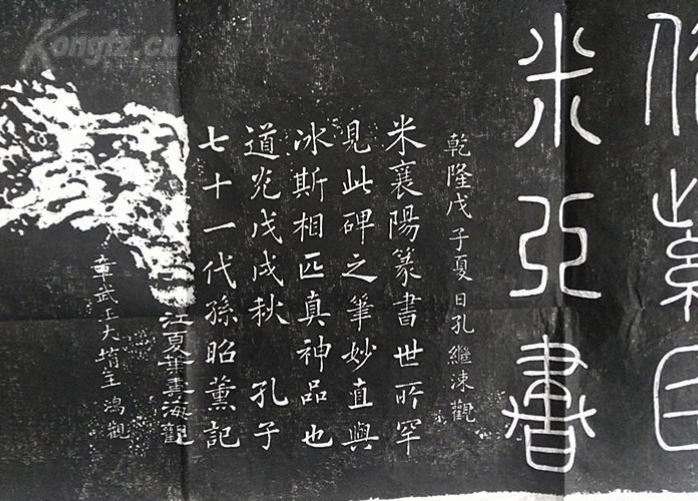 米亞書
乾隆戊子夏日孔繼涑觀
米襄陽篆書世所罕
見此碑之筆妙直與
冰斯相匹真神品也
道光戊戌秋 孔子
七十一代孫昭薰記
江夏葉海觀
章武大鴻觀
Kongfz.cn